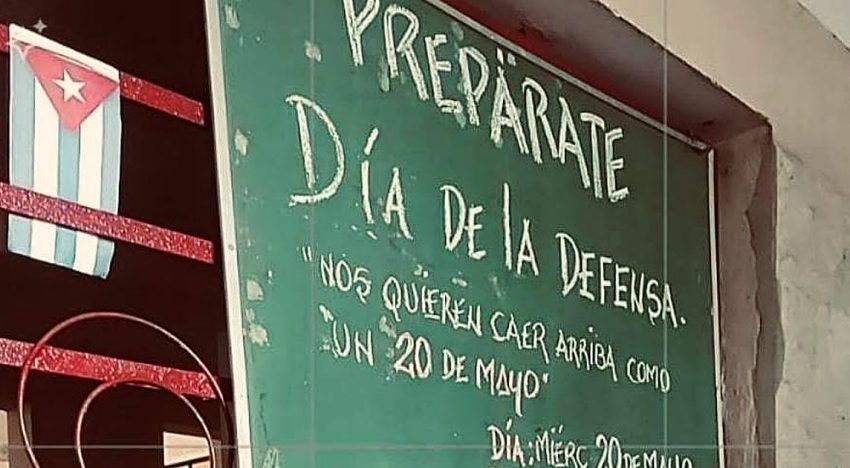 PREPÄRATE
DÍA DE LA DEFENSA.
"NOS QUÏEREN CAER ARRIBA COMO
UN 20 DE MAYO"
DÍA: MIÉRC 20 DE MAYO